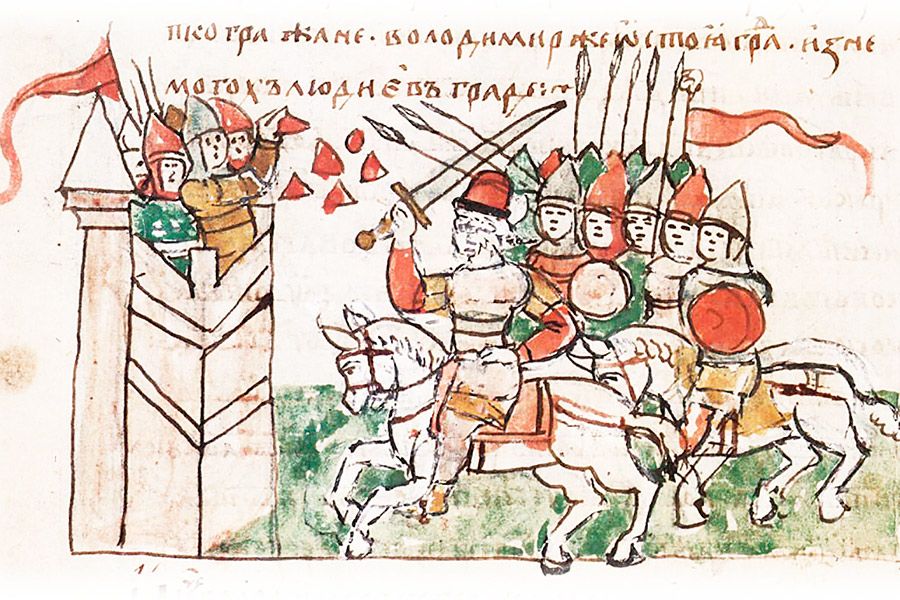 пко гражане · володимир же ѡстоꙗ граⷣ · изне
могохъ людиє въ градѣ :~